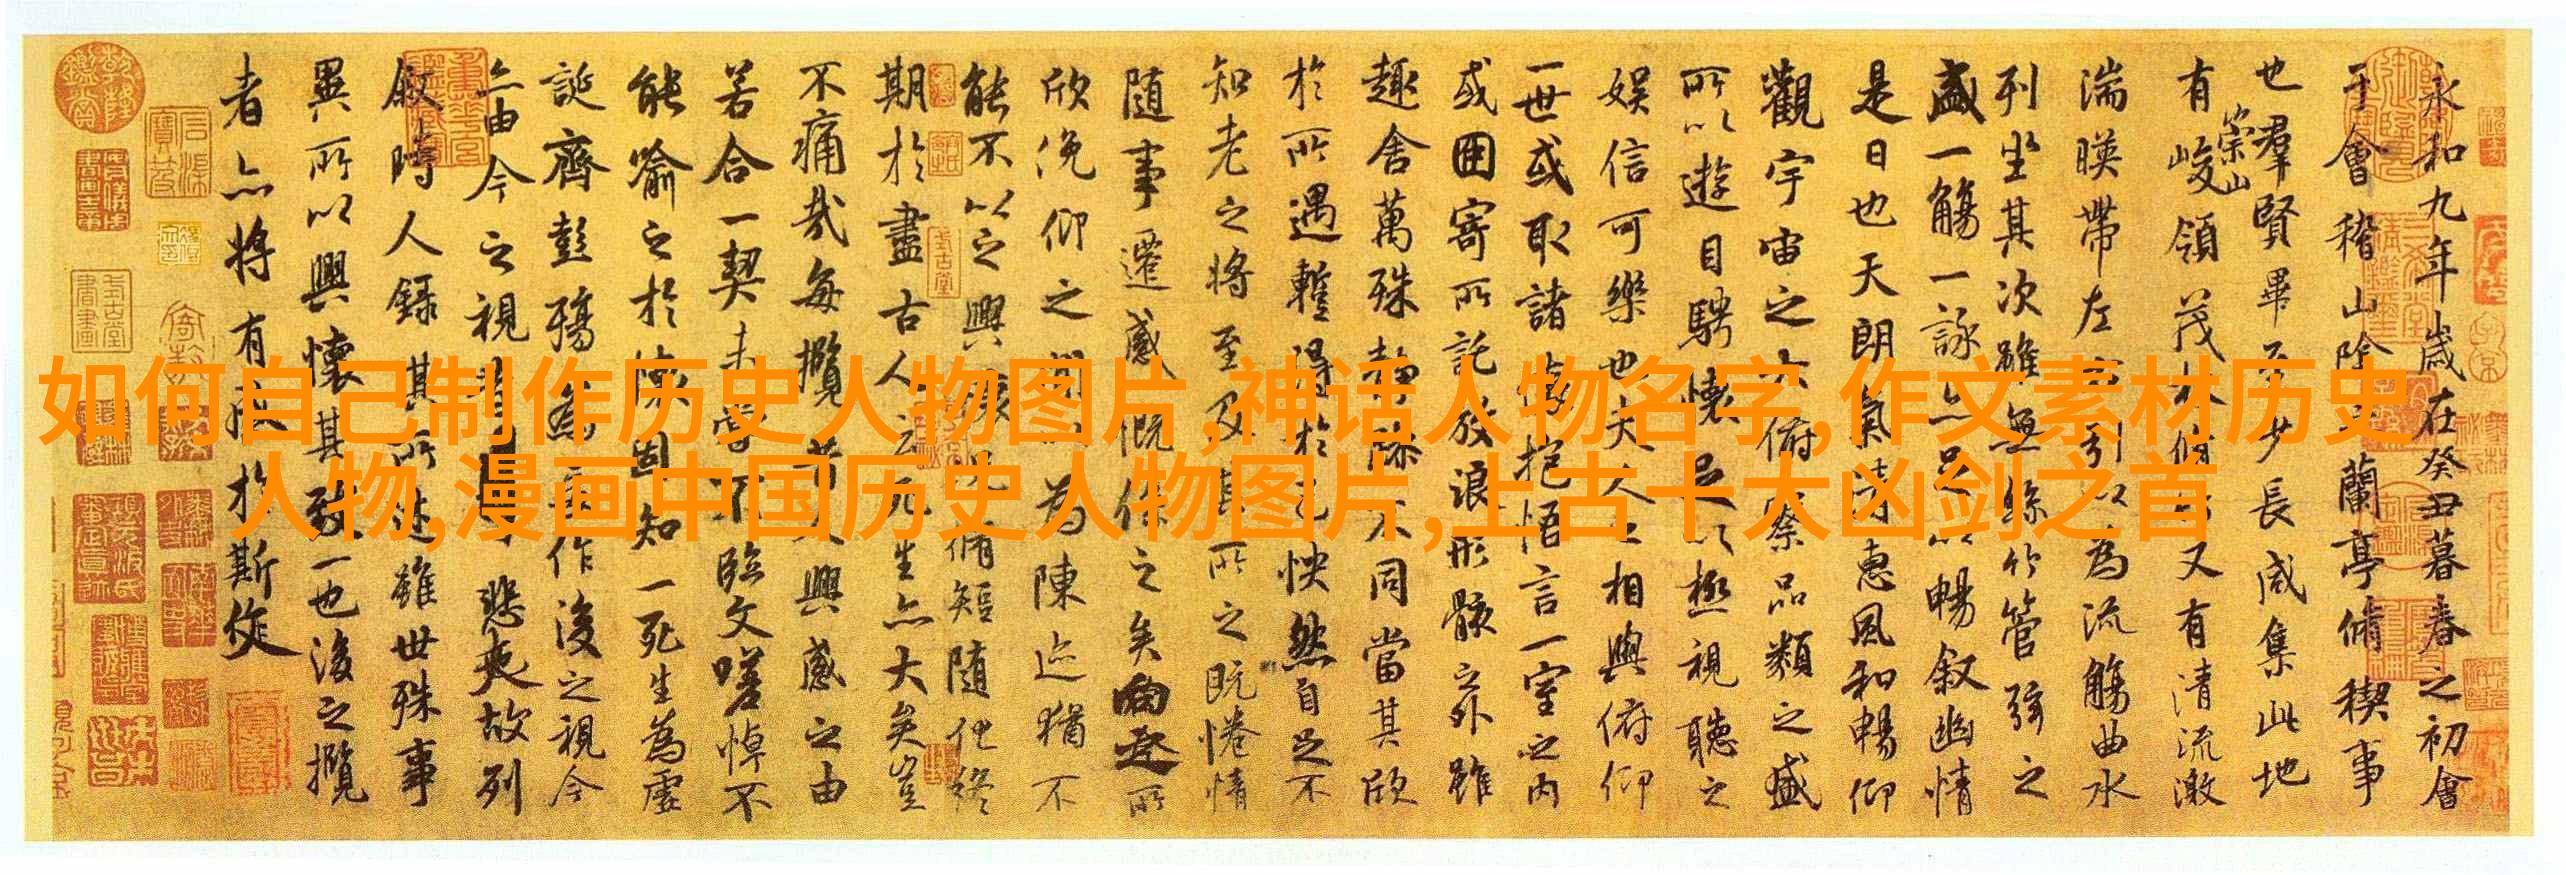 如何自己制作历史人物图片,神话人物名字,作文素材历史
人物,漫画中国历史人物图片,上古十大凶剑之首
永和九年歲在癸丑暮春之初會
于會稽山陰之蘭亭脩稧事
也羣賢畢至少長咸集此地
有崇山峻領茂林脩竹又有清流激
湍暎帶左右引以為流觴曲水
列坐其次雖無絲竹管弦之
盛一觴一詠亦足以暢叙幽情
是日也天朗氣清惠風和暢仰
觀宇宙之大俯察品類之盛
所以遊目騁懷足以極視聽之
娛信可樂也夫人之相與俯仰
一世或取諸懷抱悟言一室之內
或因寄所託放浪形骸之外雖
趣舍萬殊靜躁不同當其欣
於所遇蹔得於己怏然自足不
知老之將至及其所之既惓情
隨事遷感慨係之矣向之所
欣俛仰之間以為陳迹猶不
能不以之興懷況脩短隨化終
期於盡古人云死生亦大矣豈
不痛哉每攬昔人興感之由
若合一契未嘗不臨文嗟悼不
能喻之於懷固知一死生為虛
誕齊彭殤為妄作後之視今
亦由今之視昔悲夫故列
叙時人錄其所述雖世殊事
異所以興懷其致一也後之攬
者亦將有感於斯文